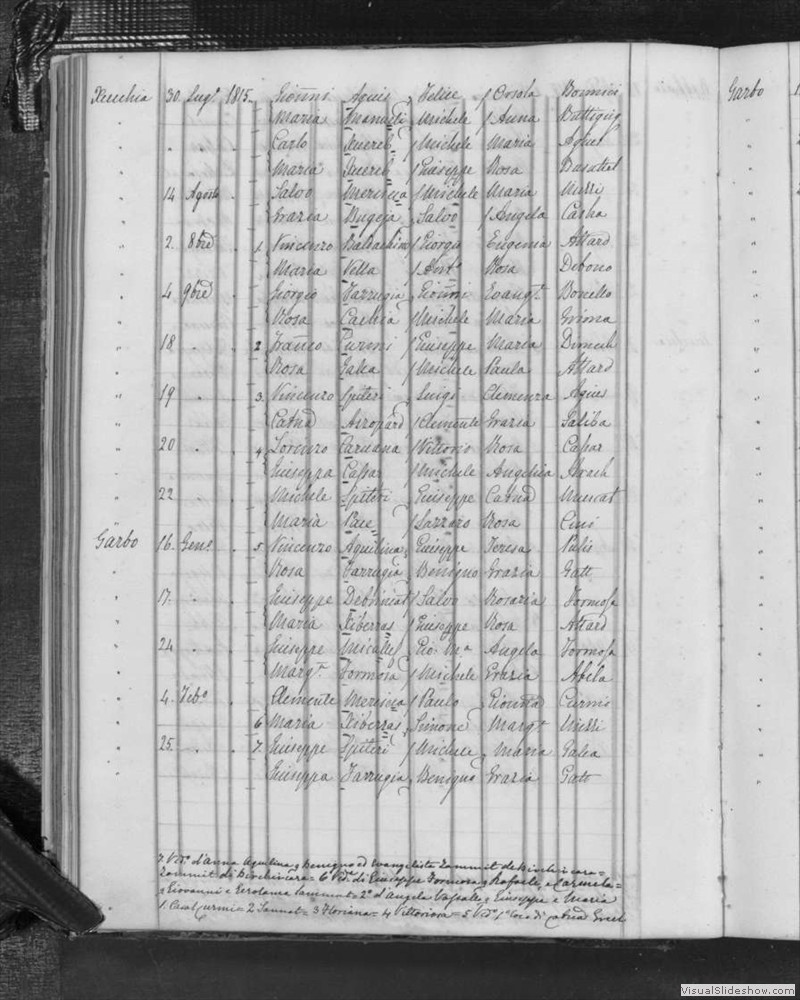 Xecchia 30. Lugº 1815. Gioñni Agius Felice Orsola Bonnici
Maria Manueli Michele Anna Buttigieg
Carlo Xuereb Michele Maria Agius
Maria Xuereb Giuseppe Rosa
14 Agosto Salvo Mersieca Michele Maria Mizzi
Grazia Bugeja Salvo Angela Casha
2. 8bre 1. Vincenzo Giorgio Eugenia Attard
Maria Vella Antº Rosa Debono
4 9bre Giorgio Farrugia Gioñni Evangta Bonello
Rosa Cachia Michele Maria Grima
18 2 Franco Curmi Giuseppe Maria Dimech
Rosa Galea Michele Paula Attard
19 3. Vincenzo Spiteri Luigi Clemenza Agius
Catna Azzopard Clemente Grazia Saliba
20 4 Lorenzo Caruana Vittorio Rosa Casar
Giuseppa Casar Michele Angelica
22 Michele Spiteri Giuseppe Catna Muscat
Maria Pace Lazzaro Rosa Cini
Garbo 16. Genº 5. Vincenzo Aquilina Giuseppe Teresa Pulis
Rosa Farrugia Benigno Grazia Gatt
17. Giuseppe Debrincat Salvo Rosaria Formosa
Maria Xiberras Giuseppe Rosa Attard
24 Giuseppe Micallef Gio: Ma Angela Formosa
Margta Formosa Michele Grazia Abela
4. Febº Clemente Mersieca Paulo Gioñna Curmi
6 Maria Xiberras Simone Margta Mizzi
25. 7. Giuseppe Spiteri Michele Maria Galea
Giuseppa Farrugia Benigno Grazia Gatt
7. Vedº d'Anna Aquilina q Benigno ed Evangelista Zammit de Birchircara=
Zammit di Birchircara= 6 Vedª di Giuseppe Formosa q Rafaele, e Carmela=
q Giovanni e Gerolama Sammut= 2º d'Angela Vassallo q Giuseppe e Maria
1. Casal Curmi= 2 Sannat= 3 Floriana= 4 Vittoriosa= 5 Vedº
Garbo
VisualSlideshow.com